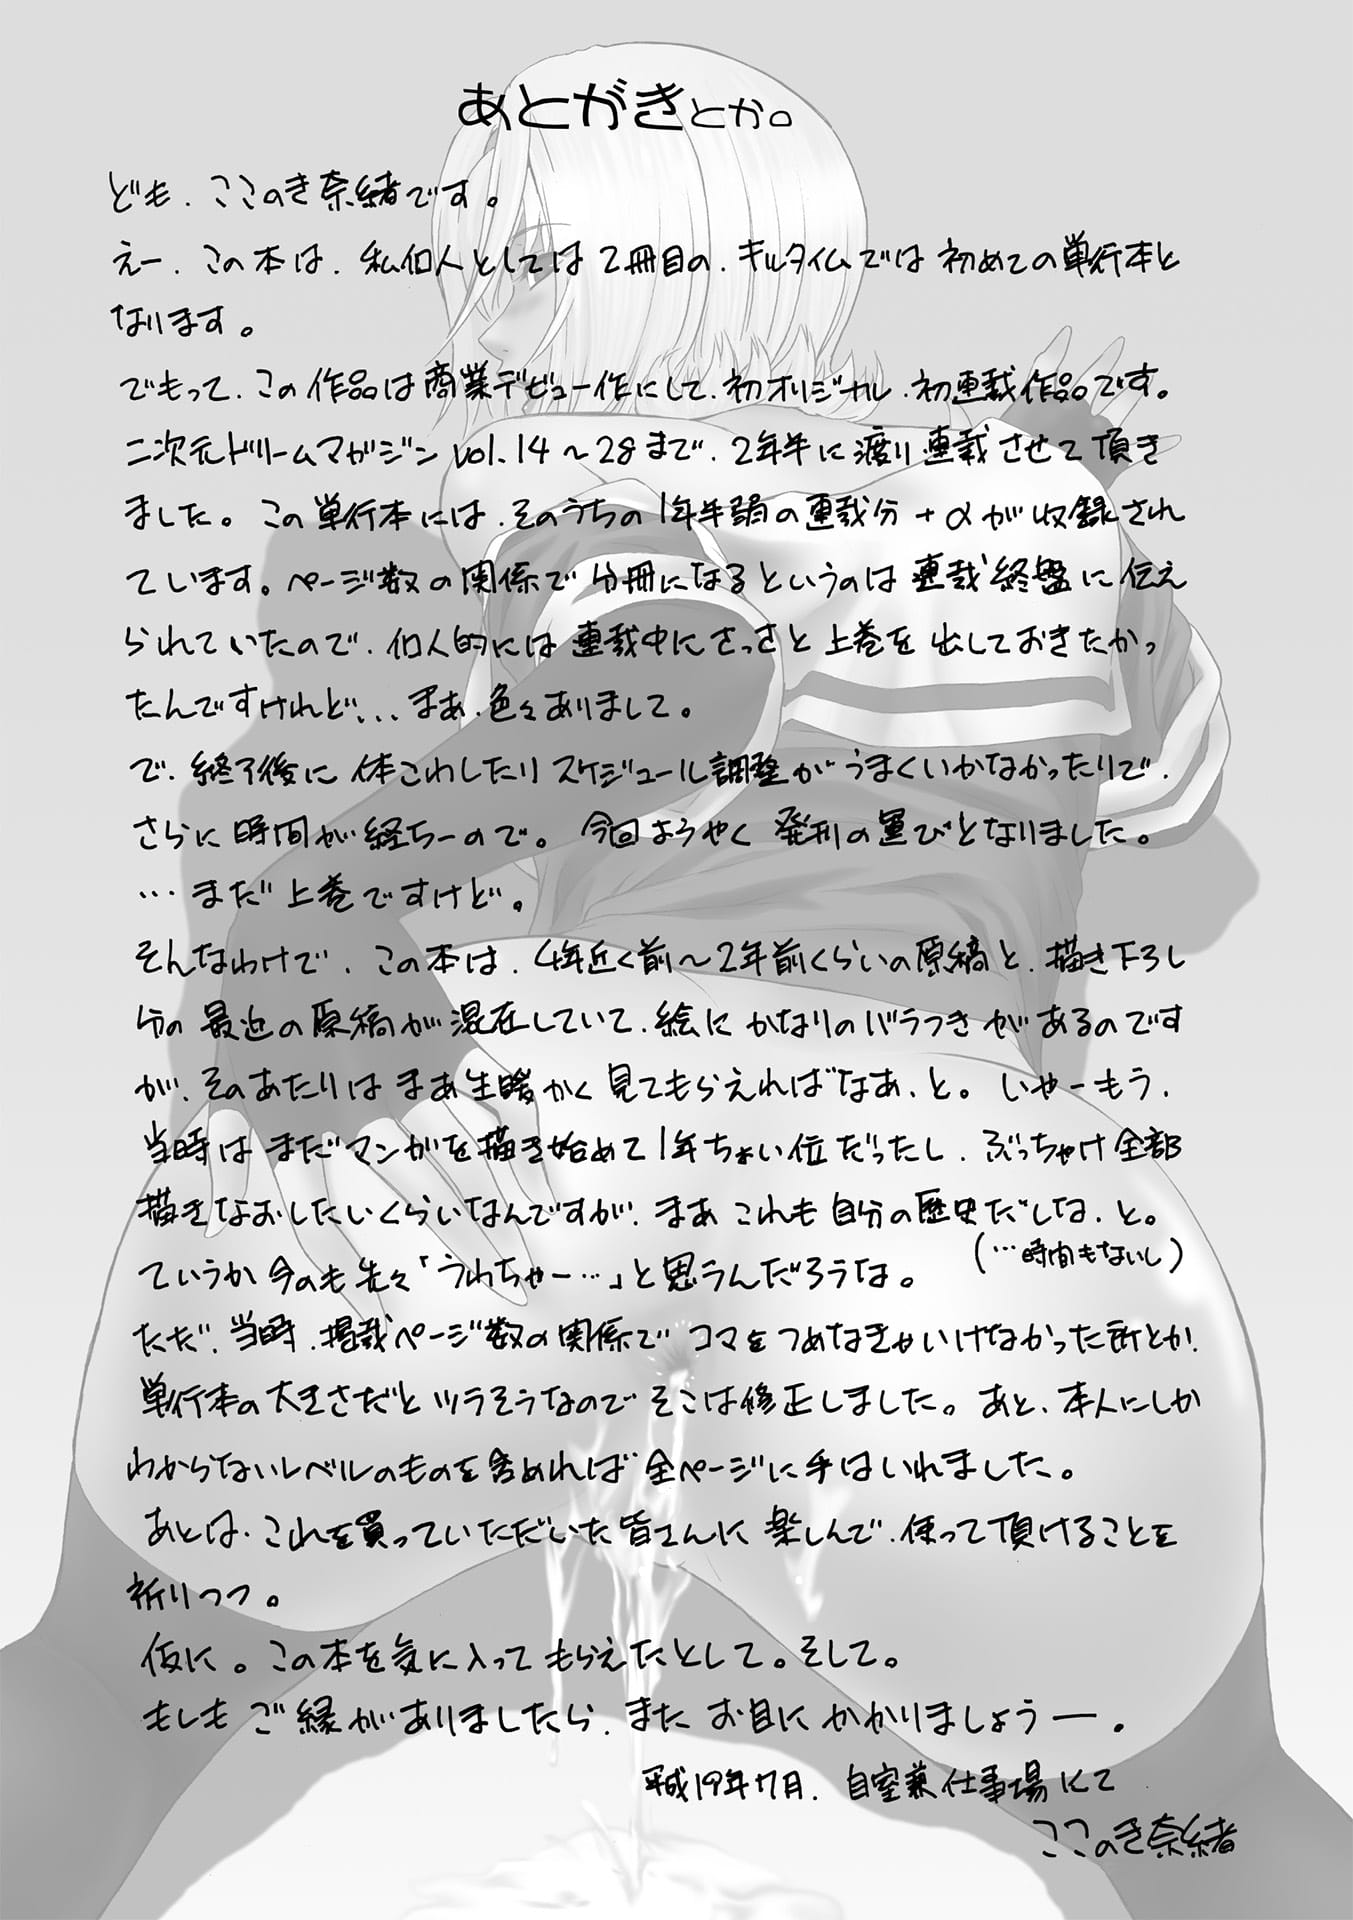 あとがきとか。
ども、ここのき奈緒です。
えー、この本は、私個人としては2冊目の、キルタイムでは初めての単行本と
なります。
でもって、この作品は商業デビュー作にして、初オリジナル、初連載作品です。
二次元ドリームマガジンvol.14～28まで、2年半に渡り連載させて頂き
ました。この単行本には、そのうちの1年半弱の連載分＋αが収録され
ています。ページ数の関係で分冊になるというのは連載終盤に伝え
られていたので、個人的には連載中にさっさと上巻を出しておきたかっ
たんですけれど、、、まあ、色々ありまして。
で、終了後に体こわしたりスケジュール調整がうまくいかなかったりで、
さらに時間が経ちーので。今回ようやく発刊の運びとなりました。
…まだ上巻ですけど。
そんなわけで、この本は、4年近く前～2年前くらいの原稿と、描き下ろし
分の最近の原稿が混在していて、絵にかなりのバラつきがあるのです
が、そのあたりはまあ生暖かく見てもらえればなあ、と。いやーもう、
当時はまだマンガを描き始めて1年ちょい位だったし、ぶっちゃけ全部
描きなおしたいくらいなんですが、まあこれも自分の歴史だしな、と。
(…時間もないし)
ていうか今のも先々「うわちゃー…」と思うんだろうな。
ただ、当時、掲載ページ数の関係でコマをつめなきゃいけなかった所とか、
単行本の大きさだとツラそうなのでそこは修正しました。あと、本人にしか
わからないレベルのものを含めれば全ページに手はいれました。
あとは、これを買っていただいた皆さんに楽しんで、使って頂けることを
祈りつつ。
仮に。この本を気に入ってもらえたとして。そして。
もしもご縁がありましたら、またお目にかかりましょうー。
平成19年7月、自室兼仕事場にて
ここのき奈緒